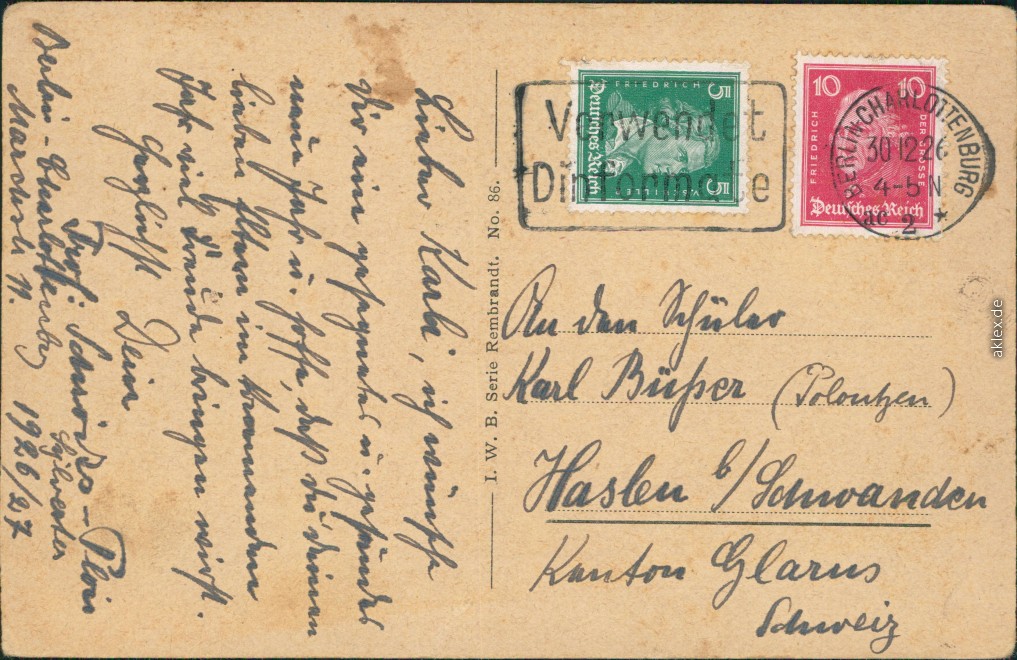 Lieber Karli, ich wünsche
Dir ein gesegnetes u. gesundes
neues Jahr u. hoffe, daß du deinen
lieben Eltern im kommenden
Jahr viel Freude bringen wirst.
Herzlichst Dein
Prof. Plön
Sylvester
1926/27
Berlin-Charlottenburg
11.
I. W. B. Serie Rembrandt. No. 86.
FRIEDRICH
5 5
Deutsches Reich
Verwendet
Din Formate
10 10
FRIEDRICH
DER GROSSE
Deutsches Reich
BERLIN-CHARLOTTENBURG
30.12.26
4-5 N
2
An den Schüler
Karl Büßer
Haslen b/Schwanden
Kanton Glarus
Schweiz
aklex.de